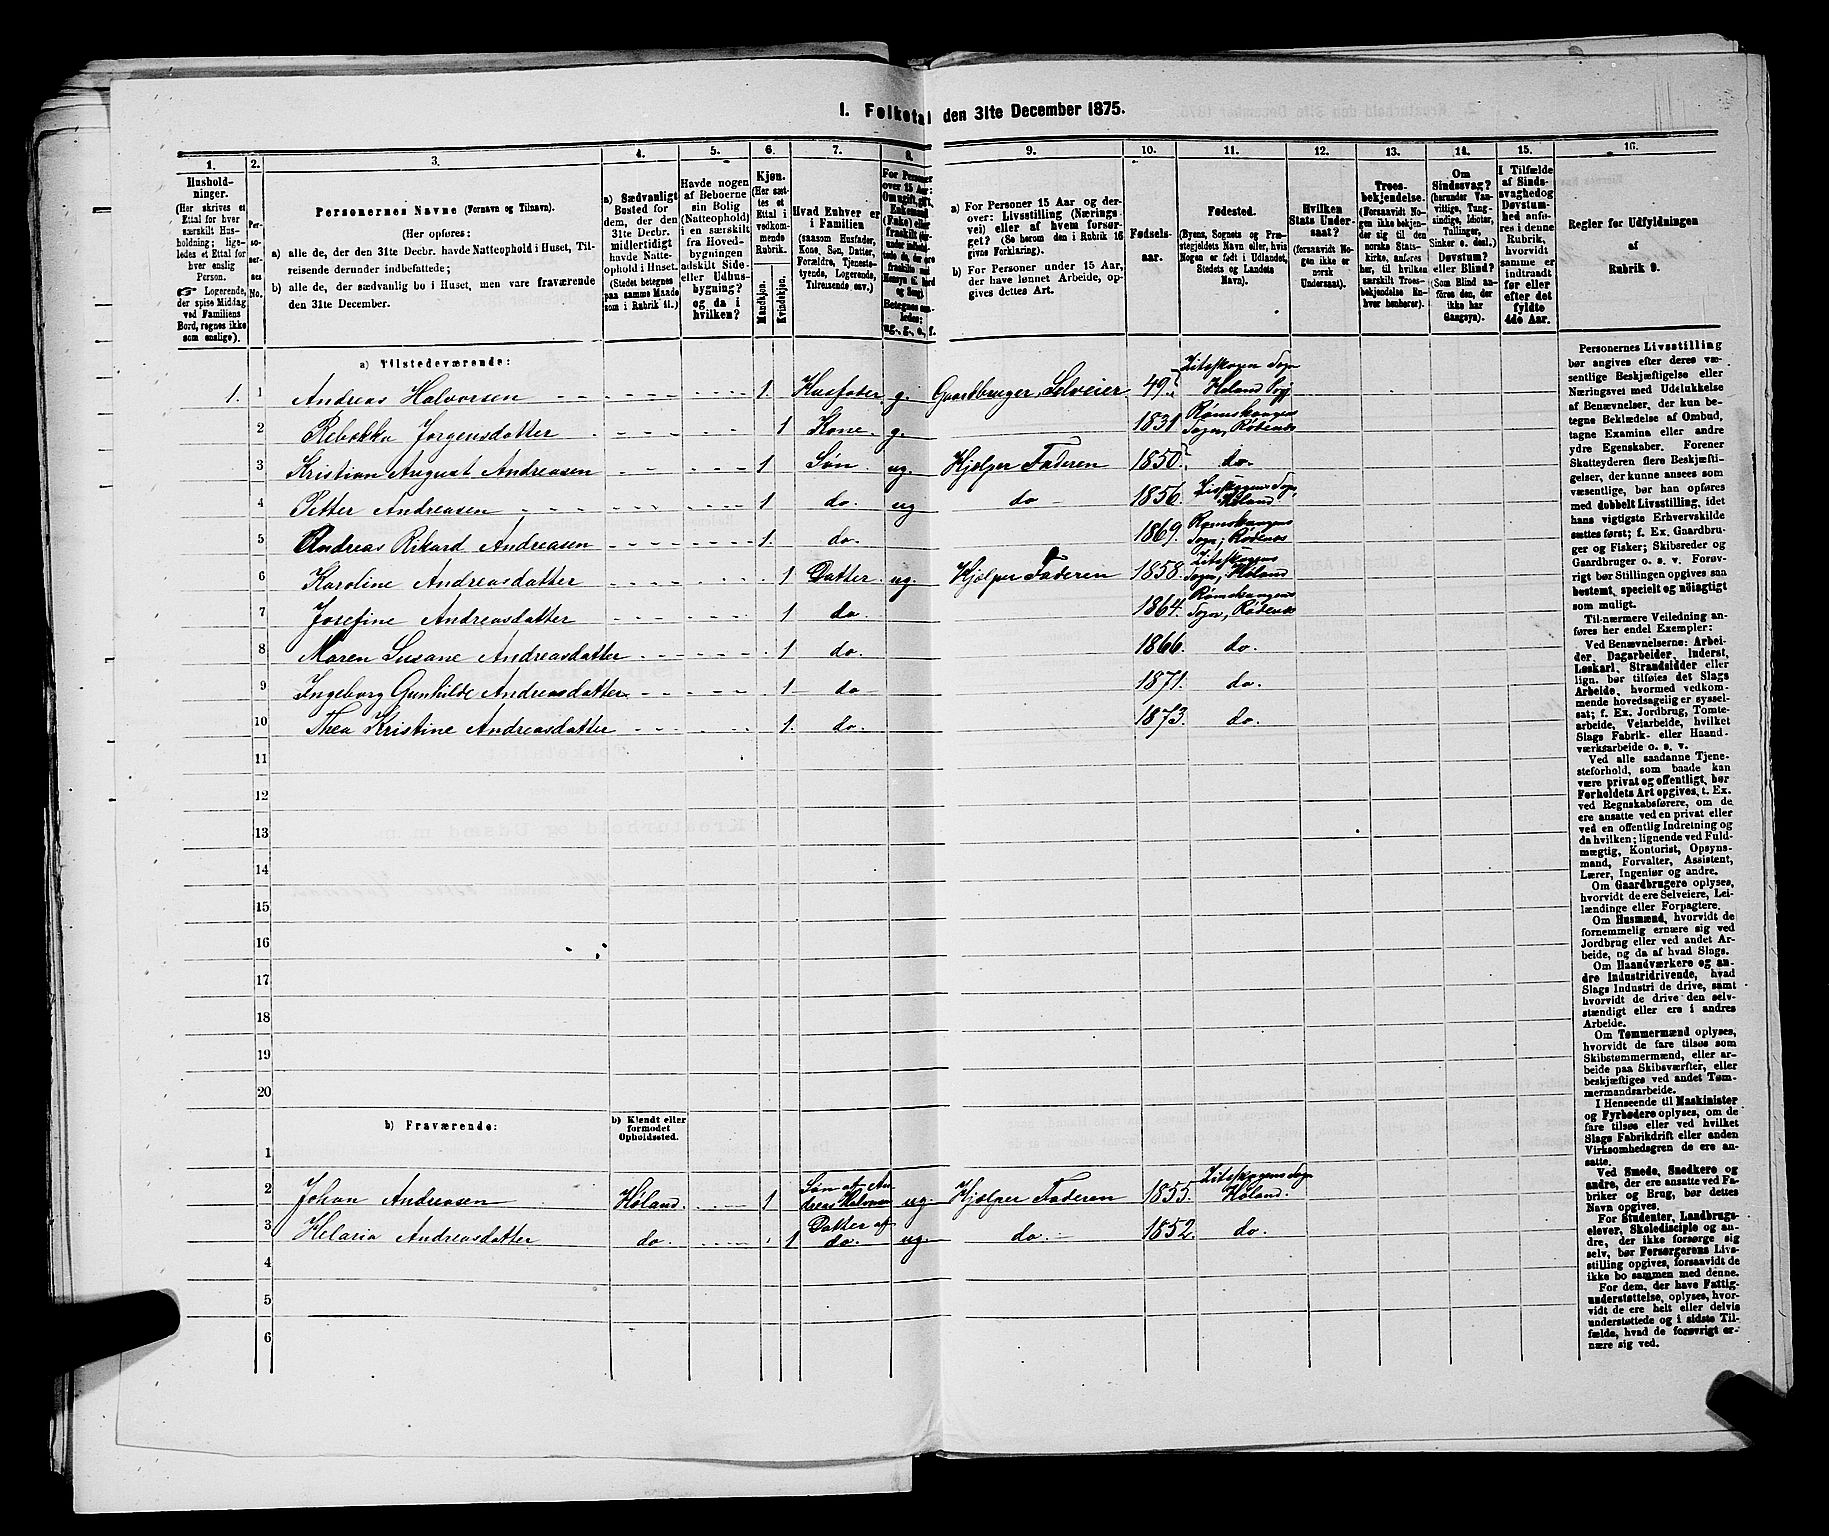 1. Folketal den 31te December 1875.
1. 2. 3. 4. 5. 6. 7. 8. 9. 10. 11. 12. 13. 14. 15. 16.
Hushold-
ninger.
(Her skrives et
Ettal for hver
særskilt Hus-
holdning; lige-
ledes et Ettal
for hver
enslig
Person.
☞ Logerende,
der spise Middag
ved Familiens
Bord, regnes ikke
som enslige).
Per-
so-
ner-
nes
No.
Personernes Navne (Fornavn og Tilnavn).
(Her opføres:
a) alle de, der den 31te Decbr. havde Natteophold i Huset, Til-
reisende derunder indbefattede;
b) alle de, der sædvanlig bo i Huset, men vare fraværende
den 31te December.
a) Sædvanligt
Bosted for
dem, der den
31te Decbr.
midlertidigt
havde Natte-
ophold i Huset.
(Stedet betegnes
paa samme Maade
som i Rubrik 11.)
Havde nogen
af Beboerne
sin Bolig
(Natteophold)
i en særskilt
fra Hoved-
bygningen
adskilt Side-
eller Udhus-
bygning?
og da i
hvilken?
Kjøn.
(Her sæt-
tes et
Ettal i
vedkom-
mende
Rubrik.
Mandkjøn.
Kvindekjøn.
Hvad Enhver er
i Familien
(saasom Husfader,
Kone, Søn, Datter,
Forældre, Tjeneste-
tyende, Logerende,
Tilreisende osv.)
For Personer
over 15 Aar:
ug., g., e., f.
a) For Personer 15 Aar og der-
over: Livsstilling (Nærings-
vei) eller af hvem forsør-
get? (Se herom den i Rubrik 16
givne Forklaring).
b) For Personer under 15 Aar,
der have lønnet Arbeide, op-
gives dettes Art.
Fødsels-
aar.
Fødested.
(Byens, Sognets og Præ-
stegjeldets Navn eller, hvis
Nogen er født i Udlandet,
Stedets og Landets
Navn).
Hvilken
Stats Under-
saat?
(forsaavidt No-
gen ikke er
norsk
Undersaat).
Troes-
bekjendelse.
(Forsaavidt No-
gen ikke bekjen-
der sig til den
norske Stats-
kirke, anføres
her, til hvilken
særskilt Troes-
bekjendelse En-
hver henhører).
Om
Sindssvag?
(herunder Van-
vittige, Tung-
sindige, Idioter,
Tullinger,
Sinker o. desl.)
Døvstum?
eller Blind?
(Som Blind an-
føres den, der
ikke har
Gangsyn).
I Tilfælde
af Sinds-
svaghed og
Døvstum-
hed anfø-
res i denne
Rubrik,
hvorvidt
samme er
indtraadt
før eller
efter det
fyldte
4de Aar.
Regler for Udfyldningen
af
Rubrik 9.
a) Tilstedeværende:
1. 1 Andreas Halvorsen 1 Husfader g. Gaardbruger, Selveier 49 Høland
2 Rebekka Jørgensdatter 1 Kone g. 1831 Rømskougens Sogn, Rødenes
3 Kristian August Andreasen 1 Søn ug. Hjelper Faderen 1850 do.
4 Petter Andreasen 1 do. ug do 1856. Høland
5 Andreas Rikard Andreasen 1. do. 1869. Rømskougens Sogn, Rødenes
6 Karoline Andreasdatter 1 Datter ug. Hjelper Faderen 1858. Sogn, Høland
7 Josefine Andreasdatter 1 do. 1864. Rømskougens Sogn, Rødenes
8 Maren Susane Andreasdatter 1 do. 1866. do.
9 Ingeborg Gunhilde Andreasdatter 1 do 1871. do.
10 Thea Kristine Andreasdatter 1. do. 1873. do.
11
12
13
14
15
16
17
18
19
20
b) Fraværende:
b) Kjendt eller
formodet
Opholdssted.
1
2 Johan Andreasen Høland. 1 Søn af Andreas Halvorsen ug. Hjelper Faderen 1855. Høland.
3 Helaria Andreasdatter do. 1 Datter af do. ug. do. 1852. do.
4
5
6
Personernes Livsstilling
bør angives efter deres væ-
sentlige Beskjæftigelse eller
Næringsvei med Udelukkelse
af Benævnelser, der kun be-
tegne Beklædelse af Ombud,
tagne Examina eller andre
ydre Egenskaber. Forener
Skatteyderen flere Beskjæfti-
gelser, der kunne ansees som
væsentlige, bør han opføres
med dobbelt Livsstilling, idet
hans vigtigste Erhvervskilde
sættes først; f. Ex. Gaardbru-
ger og Fisker; Skibsreder og
Gaardbruger o. s. v. Forøv-
rigt bør Stillingen opgives saa
bestemt, specielt og nöiagtigt
som muligt.
Til nærmere Veiledning an-
føres her endel Exempler:
Ved Benævnelserne: Arbei-
der, Dagarbeider, Inderst,
Løskarl, Strandsidder eller
lign. bør tilføies det Slags
Arbeide, hvormed vedkom-
mende hovedsagelig er syssel-
sat; f. Ex. Jordbrug, Tomte-
arbeide, Veiarbeide, hvilket
Slags Fabrik- eller Haand-
værksarbeide o. s. v.
Ved alle saadanne Tjene-
steforhold, som baade kan
være privat og offentligt, bør
Forholdets Art opgives, t. Ex.
ved Regnskabsførere, om de
ere ansatte ved en privat eller
ved en offentlig Indretning og
da hvilken; lignende ved Fuld-
mægtig, Kontorist, Opsyns-
mand, Forvalter, Assistent,
Lærer, Ingeniør og andre.
Om Gaardbrugere oplyses,
hvorvidt de ere Selveiere, Lei-
lændinge eller Forpagtere.
Om Husmænd, hvorvidt de
fornemmelig ernære sig ved
Jordbrug eller ved andet Ar-
beide, og da af hvad Slags.
Om Haandværkere og an-
dre Industridrivende, hvad
Slags Industri de drive, samt
hvorvidt de drive den selv-
stændigt eller ere i andres
Arbeide.
Om Tømmermænd oplyses,
hvorvidt de fare tilsøs som
Skibstømmermænd, eller ar-
beide paa Skibsværfter, eller
beskjæftiges ved andet Tøm-
mermandsarbeide.
I Henseende til Maskinister
og Fyrbødere oplyses, om de
fare tilsøs eller ved hvilket
Slags Fabrikdrift eller anden
Virksomhedsgren de ere an-
satte.
Ved Smede, Snedkere og
andre, der ere ansatte ved Fa-
briker og Brug, bør dettes
Navn opgives.
For Studenter, Landbrugs-
elever, Skoledisciple og an-
dre, der ikke forsørge sig
selv, bør Forsørgerens Livs-
stilling opgives, forsaavidt de
ikke bo sammen med denne.
For dem, der have Fattig-
understøttelse, oplyses, hvor-
vidt de ere helt eller delvis
understøttede og i sidste Til-
fælde, hvad de forøvrigt er-
nære sig ved.